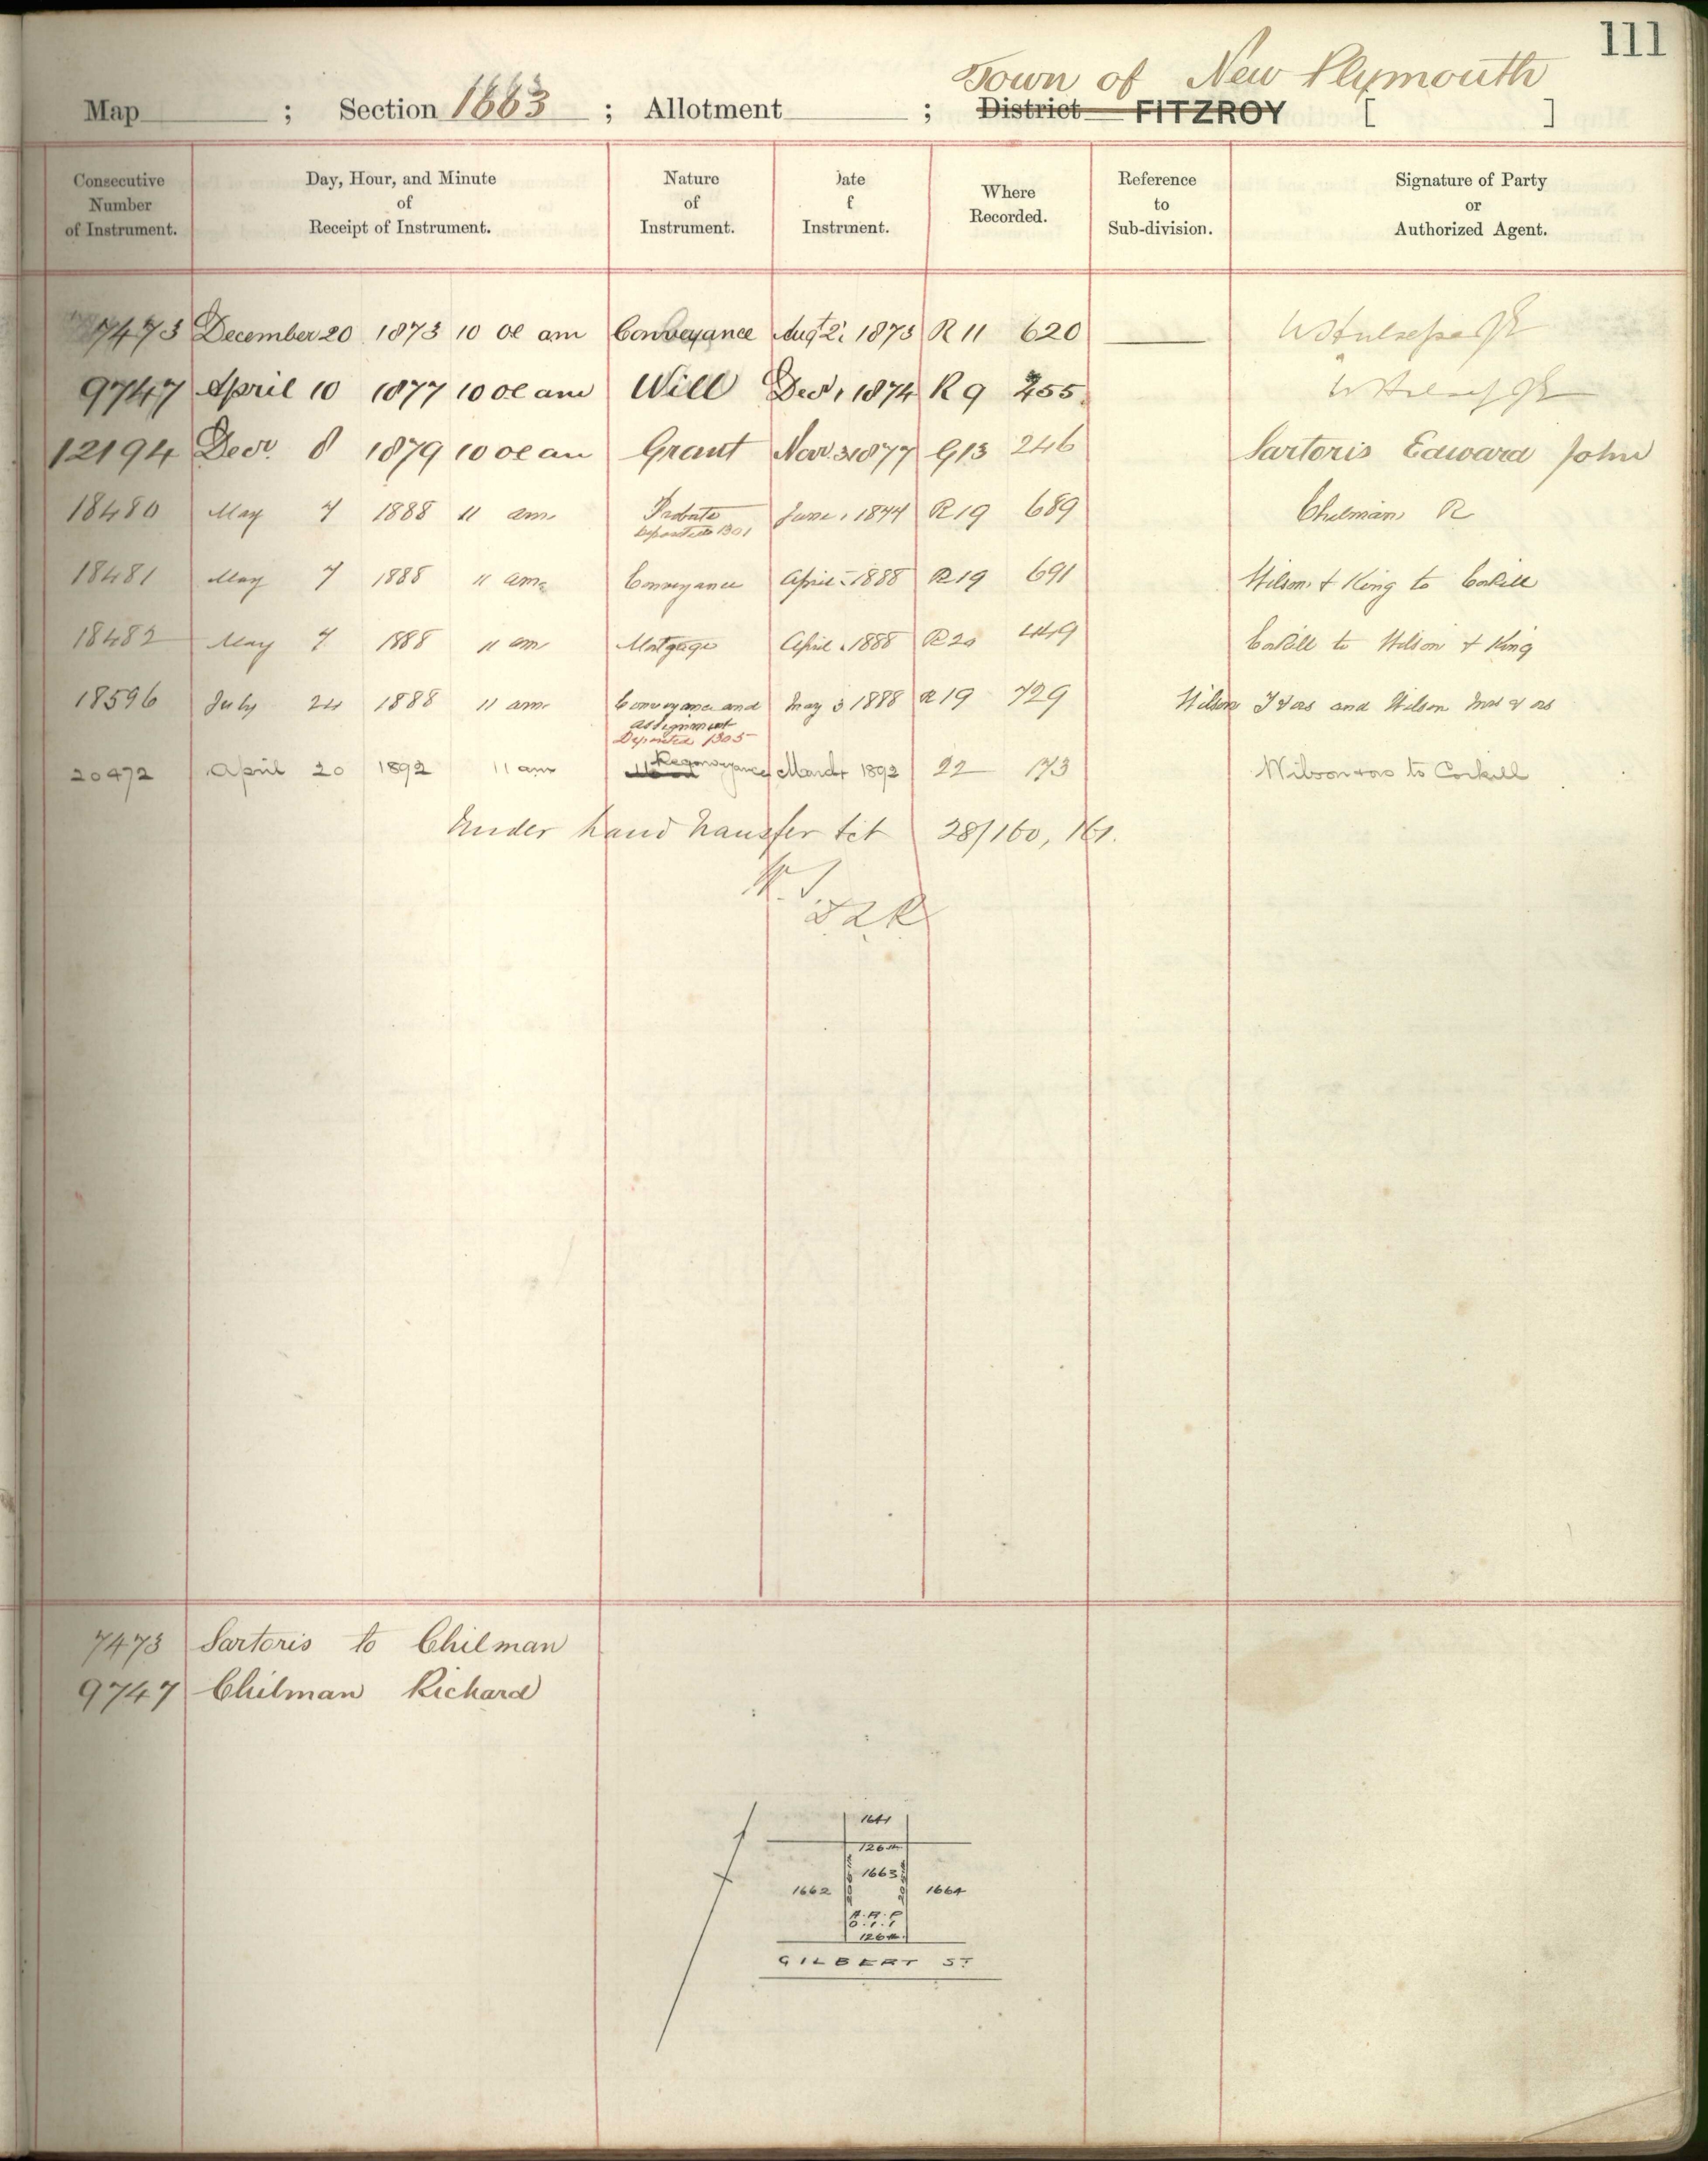 111
Town of New Plymouth
Map ; Section 1663 ; Allotment ; District FITZROY [ ]
Consecutive Number of Instrument. Day, Hour, and Minute of Receipt of Instrument. Nature of Instrument. Date of Instrument. Where Recorded. Reference to Sub-division. Signature of Party or Authorized Agent.
7473 December 20 1873 10 oc am Conveyance Augt 2, 1873 R 11 620
9747 April 10 1877 10 oc am Will Decr 1, 1874 R 9 255
12194 Decr. 8 1879 10 oc am Grant Nov. 3 1877 G13 246 Sartoris Edward John
18480 May 7 1888 11 am. Probate June 1, 1877 R19 689 Chilman R
Deposited 1301
18481 May 7 1888 11 am. Conveyance April 1888 R19 691 Wilson & King to Corkill
18482 May 7 1888 11 am Mortgage April 1888 R20 449 Corkill to Wilson & King
18596 July 24 1888 11 am. Conveyance and May 3 1888 R19 729 Wilson T & ors and Wilson Mrs & ors
assignment
Deposited 1305
20472 April 20 1892 11 am Reconveyance March 1892 22 173 Wilson & ors to Corkill
Under Land Transfer Act 28/160, 161.
7473 Sartoris to Chilman
9747 Chilman Richard
1661
126
1663
1662 1664
A. R. P
0. 1. 1
126
GILBERT ST